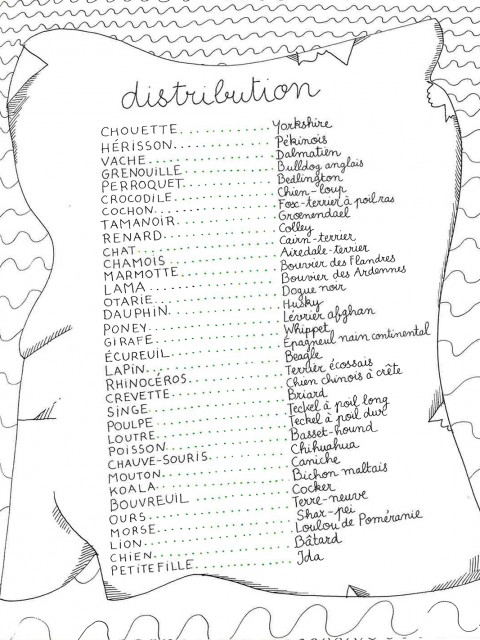 distribution
CHOUETTE.............Yorkshire
HÉRISSON.............Pékinois
VACHE.............Dalmatien
GRENOUILLE.............Bulldog anglais
PERROQUET.............Bedlington
CROCODILE.............Chien-loup
COCHON.............Fox-terrier à poil ras
TAMANOIR.............Groenendael
RENARD.............Colley
CHAT.............Cairn-terrier
CHAMOIS.............Airedale-terrier
MARMOTTE.............Bouvier des Flandres
LAMA.............Bouvier des Ardennes
OTARIE.............Dogue noir
DAUPHIN.............Husky
PONEY.............Lévrier afghan
GIRAFE.............Whippet
ÉCUREUIL.............Épagneul nain continental
LAPIN.............Beagle
RHINOCÉROS.............Terrier écossais
CREVETTE.............Chien chinois à crête
SINGE.............Briard
POULPE.............Teckel à poil long
LOUTRE.............Teckel à poil dur
POISSON.............Basset-hound
CHAUVE-SOURIS.............Chihuahua
MOUTON.............Caniche
KOALA.............Bichon maltais
BOUVREUIL.............Cocker
OURS.............Terre-neuve
MORSE.............Shar-pei
LION.............Loulou de Poméranie
CHIEN.............Bâtard
PETITE FILLE.............Ida